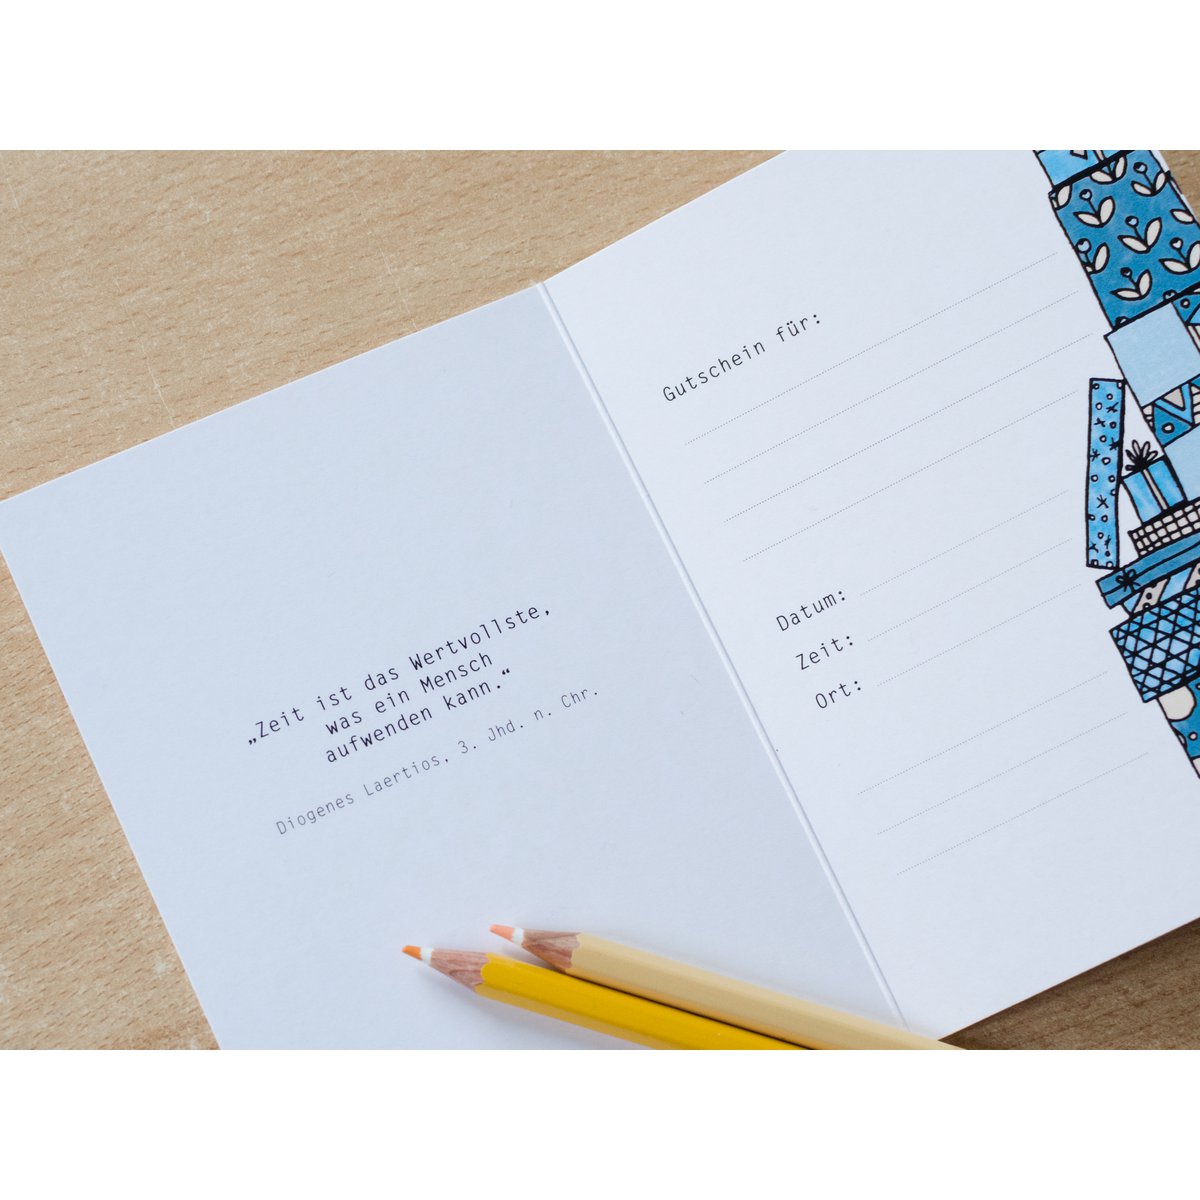 „Zeit ist das Wertvollste,
was ein Mensch
aufwenden kann.“
Diogenes Laertios, 3. Jhd. n. Chr.
Gutschein für:
Datum:
Zeit:
Ort: